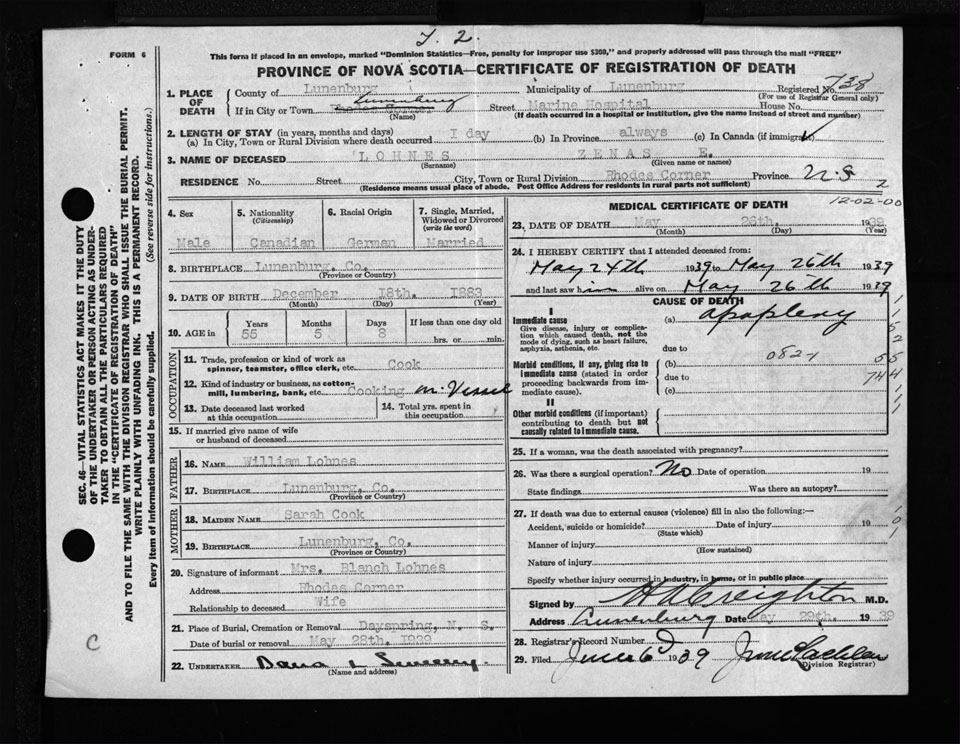 T. 2.
FORM 6
This form if placed in an envelope, marked "Dominion Statistics—Free, penalty for improper use $300," and properly addressed will pass through the mail "FREE"
PROVINCE OF NOVA SCOTIA—CERTIFICATE OF REGISTRATION OF DEATH
1. PLACE OF DEATH
County of Lunenburg Municipality of Lunenburg Registered No. 738
(For use of Registrar General only)
If in City or Town Rhodes Corner Lunenburg Street Marine Hospital House No.
(Name) (If death occurred in a hospital or institution, give the name instead of street and number)
2. LENGTH OF STAY (in years, months and days)
(a) In City, Town or Rural Division where death occurred I day (b) In Province always (c) In Canada (if immigrant)
3. NAME OF DECEASED LOHNES ZENAS E.
(Surname) (Given name or names)
RESIDENCE No. Street City, Town or Rural Division Rhodes Corner Province N.S
(Residence means usual place of abode. Post Office Address for residents in rural parts not sufficient)
2
4. Sex Male
5. Nationality (Citizenship) Canadian
6. Racial Origin German
7. Single, Married, Widowed or Divorced (write the word) Married
8. BIRTHPLACE Lunenburg, Co.
(Province or Country)
9. DATE OF BIRTH December 18th. 1883
(Month) (Day) (Year)
10. AGE in Years Months Days If less than one day old
55 5 8 hrs. or min.
OCCUPATION
11. Trade, profession or kind of work as spinner, teamster, office clerk, etc. Cook
12. Kind of industry or business, as cotton-mill, lumbering, bank, etc. Cooking on Vessel
13. Date deceased last worked at this occupation
14. Total yrs. spent in this occupation
15. If married give name of wife or husband of deceased
FATHER
16. NAME William Lohnes
17. BIRTHPLACE Lunenburg, Co.
(Province or Country)
MOTHER
18. MAIDEN NAME Sarah Cook
19. BIRTHPLACE Lunenburg, Co.
(Province or Country)
20. Signature of informant Mrs. Blanch Lohnes
Address Rhodes Corner
Relationship to deceased Wife
21. Place of Burial, Cremation or Removal Dayspring, N. S.
Date of burial or removal May 28th. 1939
22. UNDERTAKER Dana L Sweeny
(Name and address)
MEDICAL CERTIFICATE OF DEATH
12-02-00
23. DATE OF DEATH May 26th. 1939
(Month) (Day) (Year)
24. I HEREBY CERTIFY that I attended deceased from:
May 24th 1939 to May 26th 1939
and last saw him alive on May 26th 1939
CAUSE OF DEATH
I
Immediate cause (a) Apoplexy
Give disease, injury or complication which caused death, not the mode of dying, such as heart failure, asphyxia, asthenia, etc.
due to
Morbid conditions, if any, giving rise to immediate cause (stated in order proceeding backwards from immediate cause). (b) 082-1
due to
(c)
II
Other morbid conditions (if important) contributing to death but not causally related to immediate cause.
25. If a woman, was the death associated with pregnancy?
26. Was there a surgical operation? No Date of operation 19
State findings Was there an autopsy?
27. If death was due to external causes (violence) fill in also the following:—
Accident, suicide or homicide? Date of injury 19
(State which)
Manner of injury
(How sustained)
Nature of injury
Specify whether injury occurred in industry, in home, or in public place
Signed by H A Creighton M.D.
Address Lunenburg Date May 29th. 1939
28. Registrar's Record Number
29. Filed June 6 1939
(Division Registrar)
SEC. 46—VITAL STATISTICS ACT MAKES IT THE DUTY
OF THE UNDERTAKER OR PERSON ACTING AS UNDER-
TAKER TO OBTAIN ALL THE PARTICULARS REQUIRED
IN THE "CERTIFICATE OF REGISTRATION OF DEATH"
AND TO FILE THE SAME WITH THE DIVISION REGISTRAR WHO SHALL ISSUE THE BURIAL PERMIT.
WRITE PLAINLY WITH UNFADING INK. THIS IS A PERMANENT RECORD.
Every item of information should be carefully supplied. (See reverse side for instructions.)
C